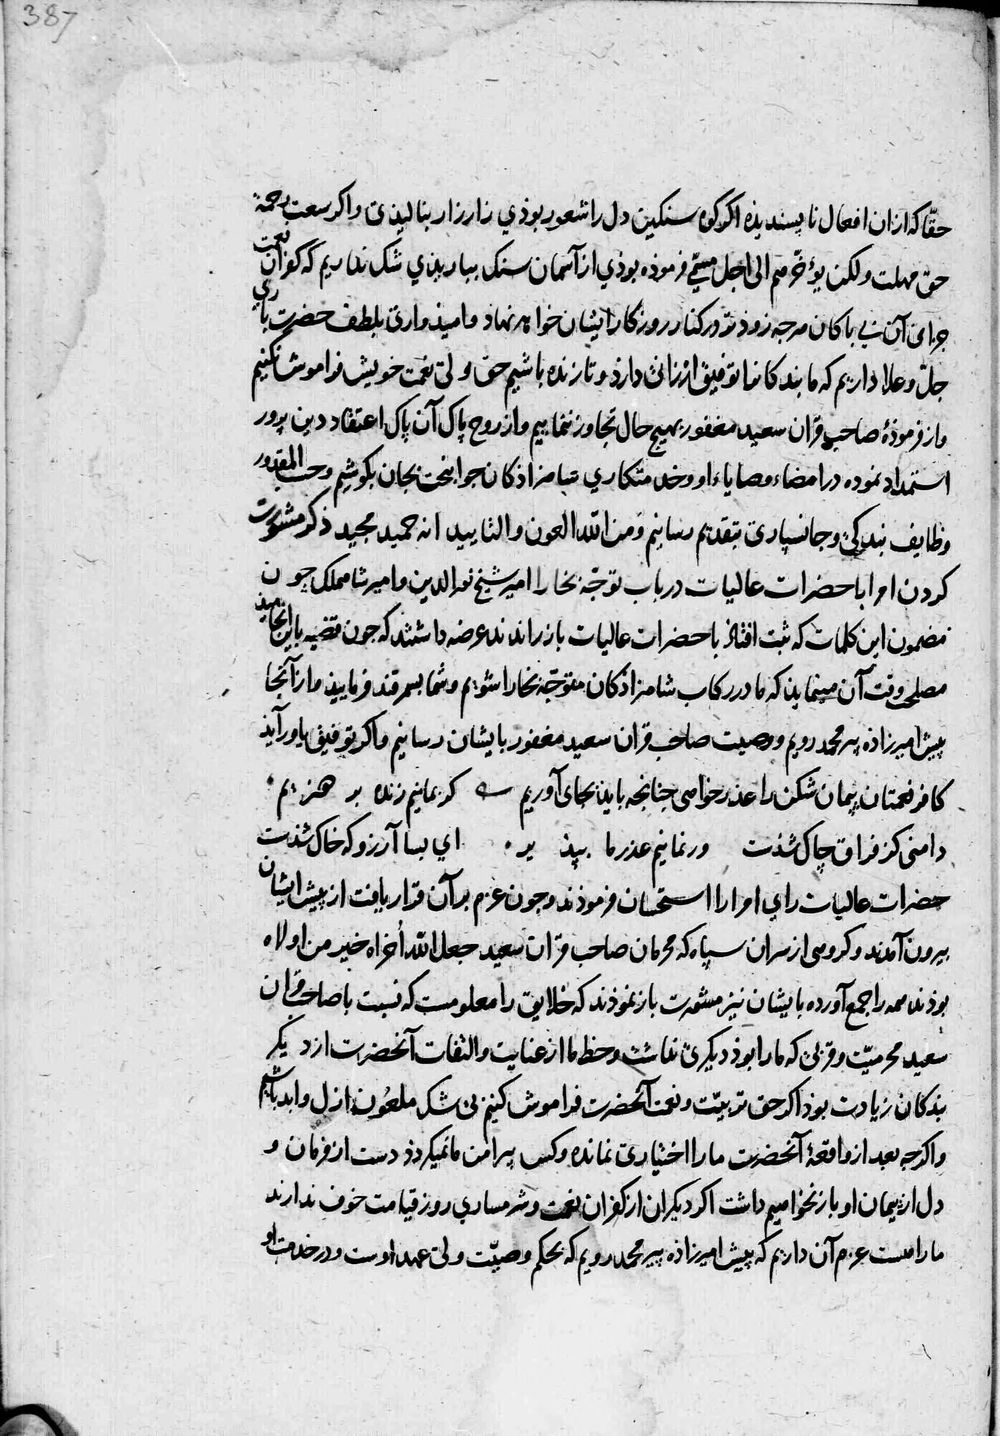 387
حقّا که ازان افعال ناپسندیذه اگر کوه سنکین دل را شعور بوذی زار زار بنالیذی و اکر سعت رحمة
حق مهلت ولکن یؤخرهم الی اجل مسمّی فرموذه بوذی از آسمان سنک بباریذی شک نداریم که کفران نعمت
جزای آن بی باکان هرجه زوذتر در کنار روزکار ایشان خواهد نهاد و امیذواری بلطف حضرت باری
جلّ و علا داریم که ما بندکانرا توفیق ارزانی دارذ و تا زنده باشیم حق ولی نعمت خویش فراموش نکنیم
و از فرموذهٔ صاحب قران سعید مغفور بهیج حال تجاوز ننماییم و از روح پاک آن پاک اعتقاد دین پرور
استمداد نموده در امضاء وصایاء او و خدمتکاری شاهزاذکان جوانبخت بجان بکوشیم و حسب المقدور
وظایف بندکی و جانسپاری بتقدیم رسانیم و من الله العون و التایید انه حمید مجید ذکر مشورت
کردن امرا با حضرات عالیات در باب توجّه بخارا امیر شیخ نور الدین و امیر شاهملک جون
مضمون این کلمات که ثبت افتاذ با حضرات عالیات باز راندند عرضه داشتند که جون قضیه باین انجامیذ
مصلحت وقت آن مینمایذ که ما در رکاب شاهزاذکان متوجّه بخارا شویم و شما بسمرقند فرماییذ و از آنجا
پیش امیرزاذه پیر محمد رویم و وصیت صاحب قران سعید مغفور بایشان رسانیم و اکر توفیق یاور آیذ
کافر نعمتان پیمان شکن را عذر خواهی جنانجه بایذ بجای آوریم کر بمانیم زنده بر هزیم
دامنی کز فراق چاک شذست ور نمانیم عذر ما بپذیر ای بسا آرزو که خاک شذست
حضرات عالیات رای امرا را استحسان فرموذند و جون عزم بر آن قرار یافت از پیش ایشان
بیرون آمدند و کروهی از سران سپاه که محرمان صاحب قران سعید جعل الله أخراه خیر من اولاه
بوذند همه را جمع آورده بایشان نیز مشورت باز نموذند که خلایق را معلومست که نسبت با صاحب قران
سعید محرمیّت و قربی که ما را بوذ دیکری نداشت و حظ ما از عنایت و التفات آنحضرت از دیکر
بندکان زیادت بوذ اکر حق تربیت و نعمت آنحضرت فراموش کنیم بی شک ملعون ازل و ابد باشیم
و اکرجه بعد از واقعهٔ آنحضرت ما را اختیاری نمانده و کس پیرامن ما نمیکردذ دست از فرمان و
دل از پیمان او باز نخواهیم داشت اکر دیکران از کفران نعمت و شرمساری روز قیامت خوف ندارند
ما را هست عزم آن داریم که پیش امیرزاذه پیر محمد رویم که بحکم وصیّت ولی عهد اوست و در خدمت او